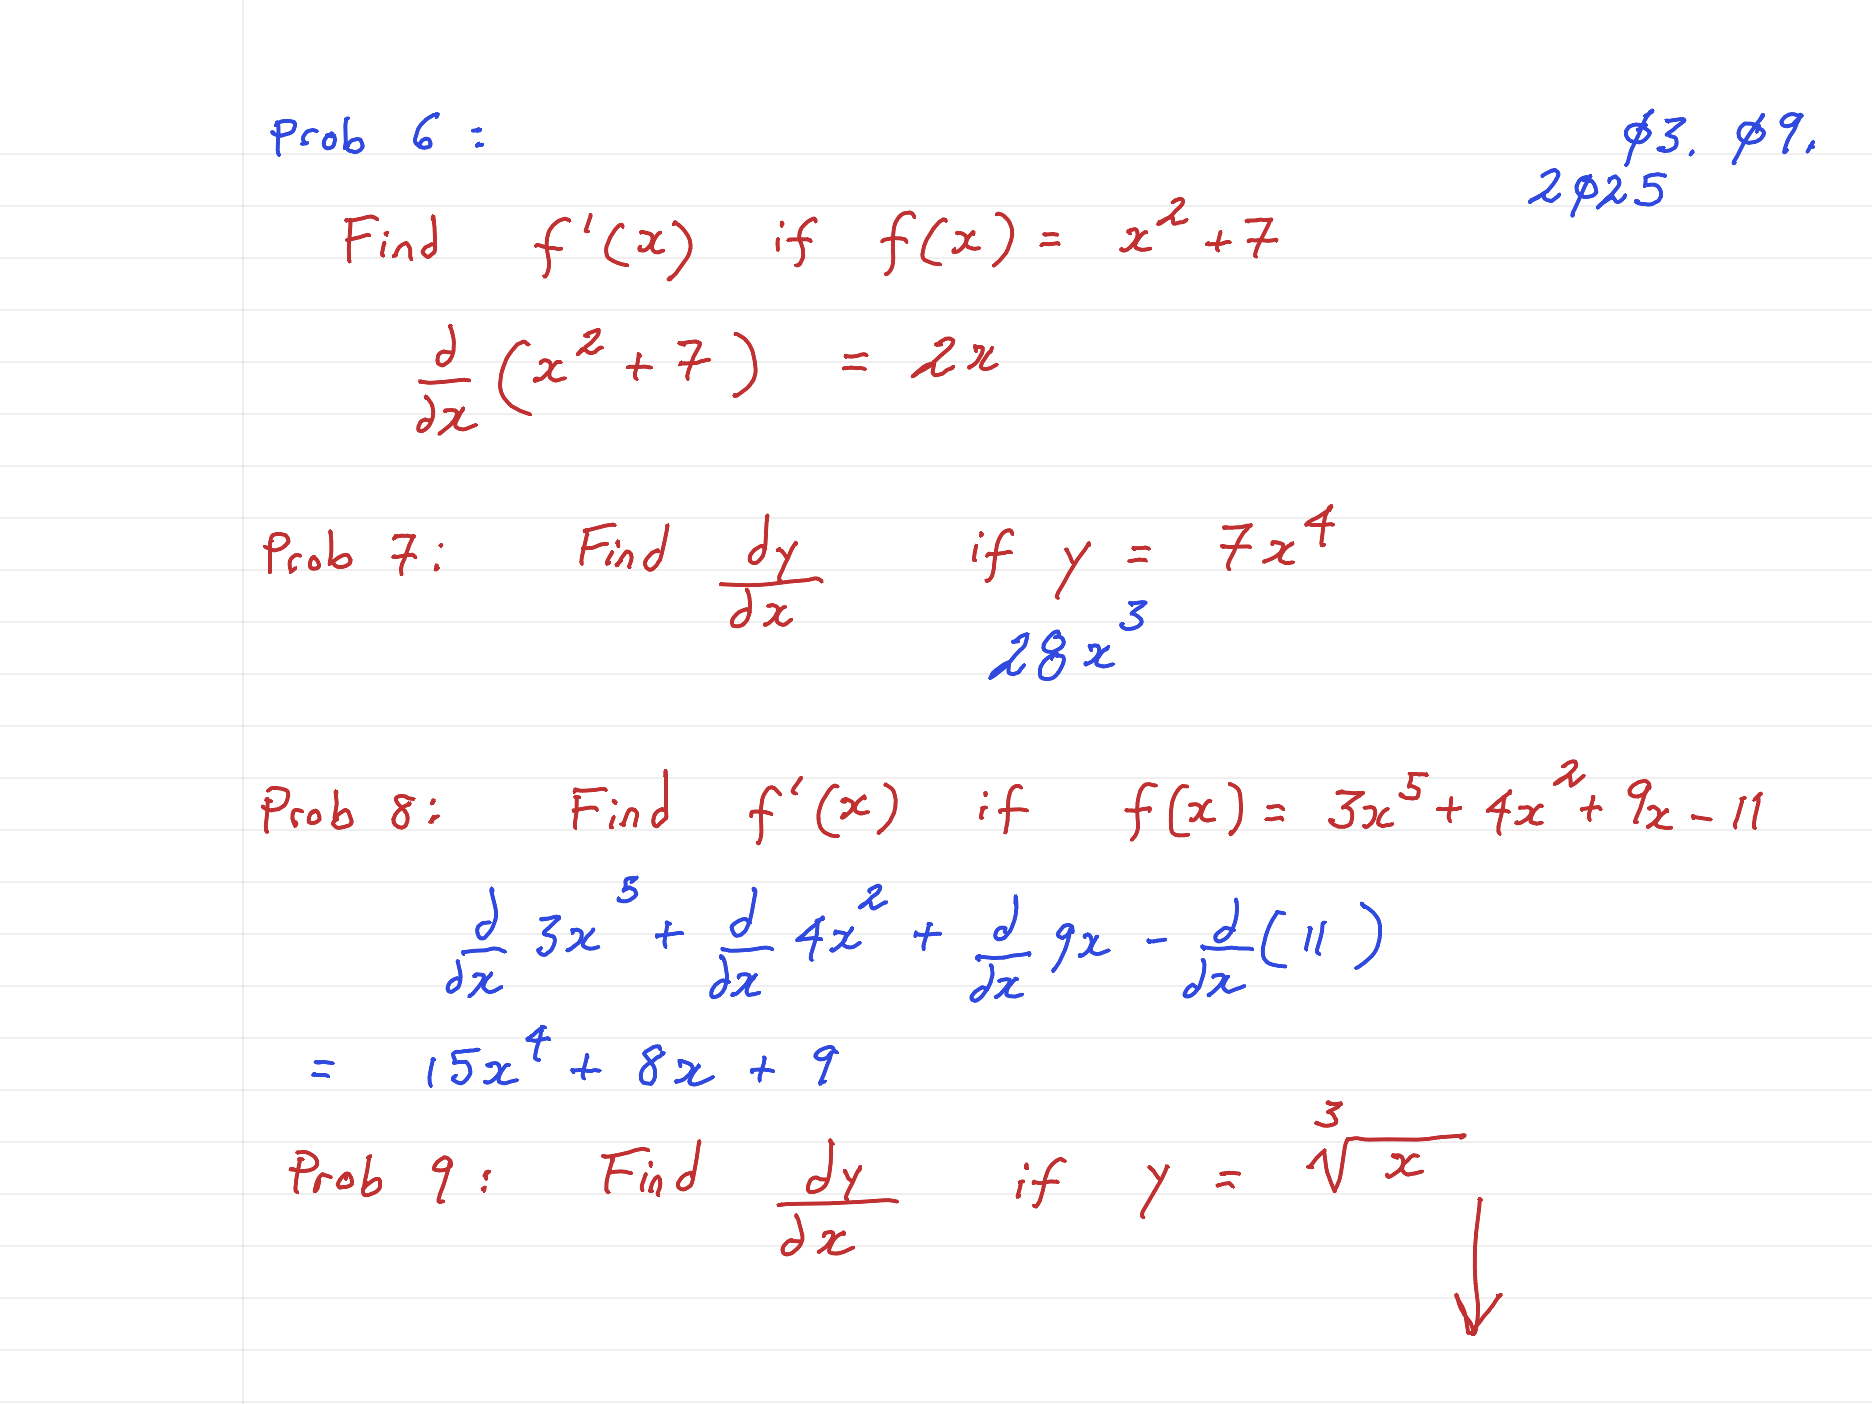 Prob 6 :
ø3. ø9.
2ø25
Find f'(x) if f(x) = x² + 7
d/dx (x² + 7) = 2x
Prob 7 : Find dy/dx if y = 7x⁴
28x³
Prob 8 : Find f'(x) if f(x) = 3x⁵ + 4x² + 9x - 11
d/dx 3x⁵ + d/dx 4x² + d/dx 9x - d/dx (11)
= 15x⁴ + 8x + 9
Prob 9 : Find dy/dx if y = ³√x